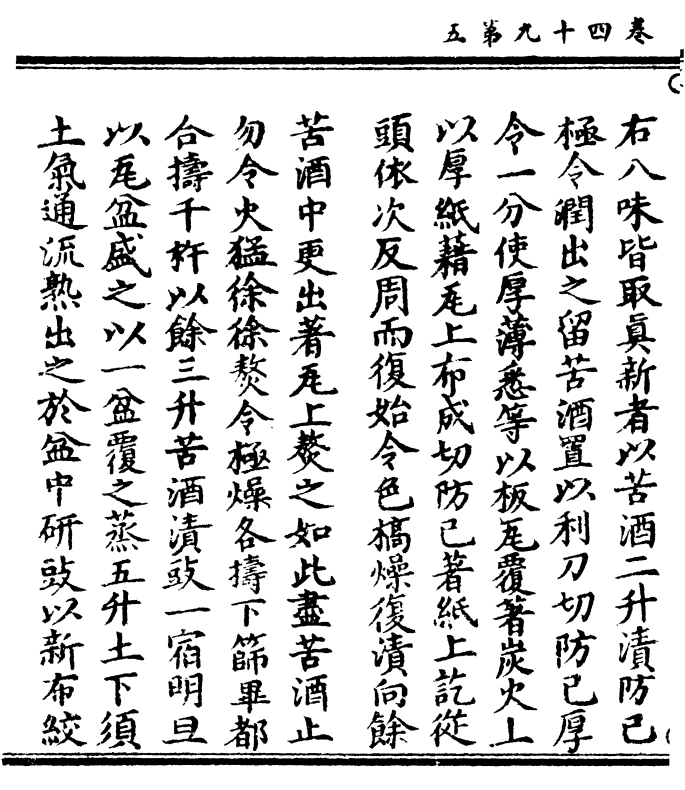 卷四十九第五
右八味皆取真新者以苦酒二升漬防己
極令潤出之留苦酒置以利刀切防己厚
令一分使厚薄悉等以板瓦覆著炭火上
以厚紙藉瓦上布成切防己著紙上訖從
頭依次反周而復始令色槁燥復漬向餘
苦酒中更出著瓦上熬之如此盡苦酒止
勿令火猛徐徐熬令極燥各擣下篩畢都
合擣千杵以餘三升苦酒漬豉一宿明旦
以瓦盆盛之以一盆覆之蒸五升土下須
土氣通流熟出之於盆中研豉以新布絞